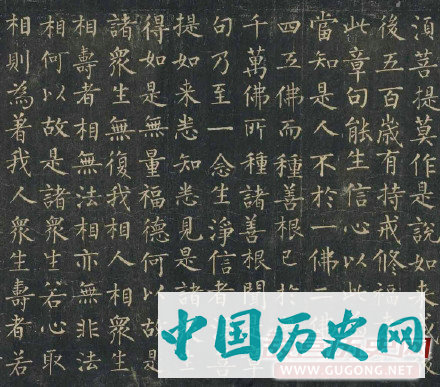 須菩提莫作是說如来
後五百歲有持戒修福
此章句能生信心以此
當知是人不於一佛二
四五佛而種善根已於
千萬佛所種諸善根聞
句乃至一念生淨信者
提如来悉知悉見是諸
得如是無量福德何以故是
諸衆生無復我相人相衆生
相壽者相無法相亦無非法
相何以故是諸衆生若心取
相則為着我人衆生壽者若
中国历史网
WWW.GUGONG.NET